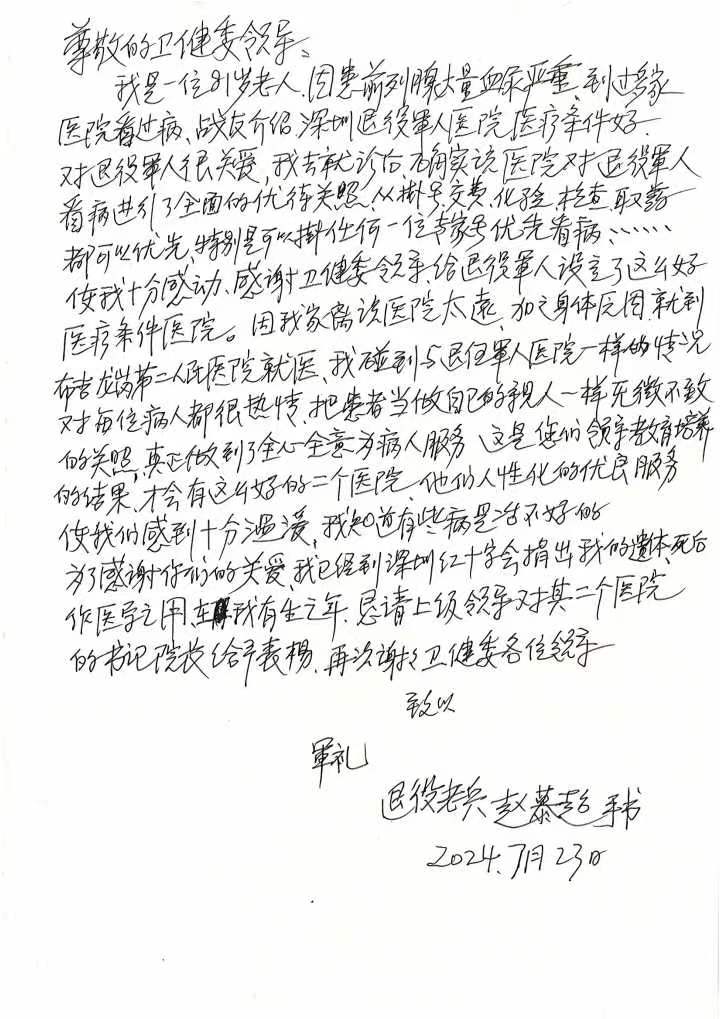 尊敬的卫健委领导:
我是一位81岁老人,因患前列腺大量血尿严重,到过多家
医院看过病、战友介绍,深圳退役军人医院,医疗条件好.
对退役军人很关爱,我去就诊后,确实该医院对退役军人
看病进行了全面的优待关照,从掛号,交费,化验,检查,取药
都可以优先,特别是可以掛任何一位专家号优先看病、……
使我十分感动、感谢卫健委领导,给退役军人设立了这么好
医疗条件医院。因我家离该医院太远,加之身体原因就到
布吉龙岗第二人民医院就医、我碰到与退伍军人医院一样的情况
对每位病人都很热情,把患者当做自己的亲人一样无微不致
的关照,真正做到了全心全意为病人服务,这是您们领导教育培养
的结果,才会有这么好的二个医院,他们人性化的优良服务
使我们感到十分温暖,我知道有些病是治不好的
为了感谢你们的关爱、我已经到深圳红十字会捐出我的遗体,死后
作医学之用,在我有生之年,恳请上级领导对其二个医院
的书记院长给予表揚,再次谢谢卫健委各位领导
致以
軍礼
退役老兵 赵慕超 手书
2024.7月23日